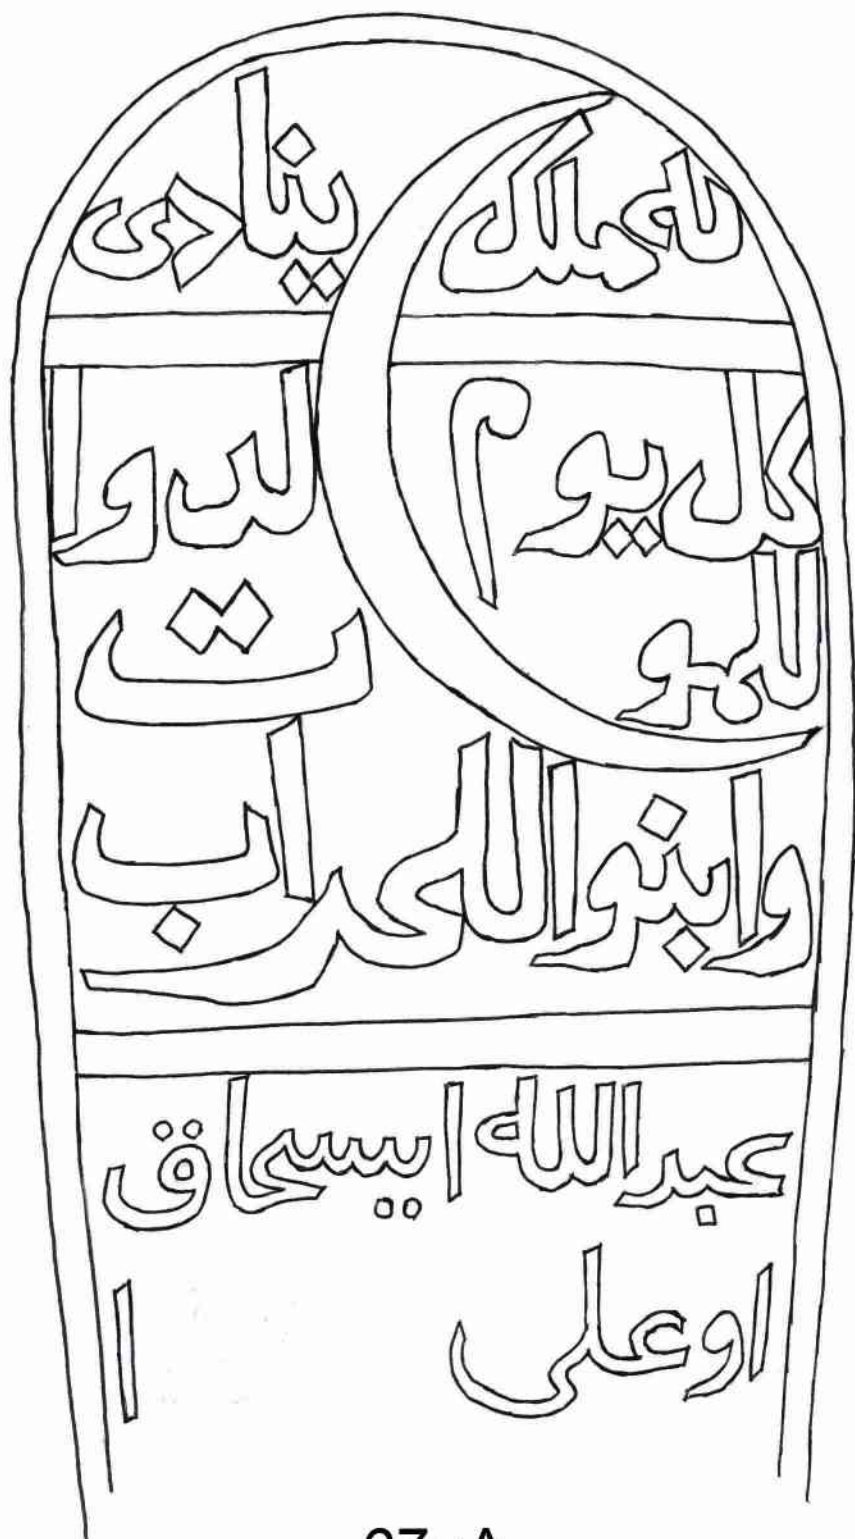 له ملك ينادى
كل يوم لدوا
للمو ت
وابنوا اللحراب
عبد الله ايسحاق
او على ا